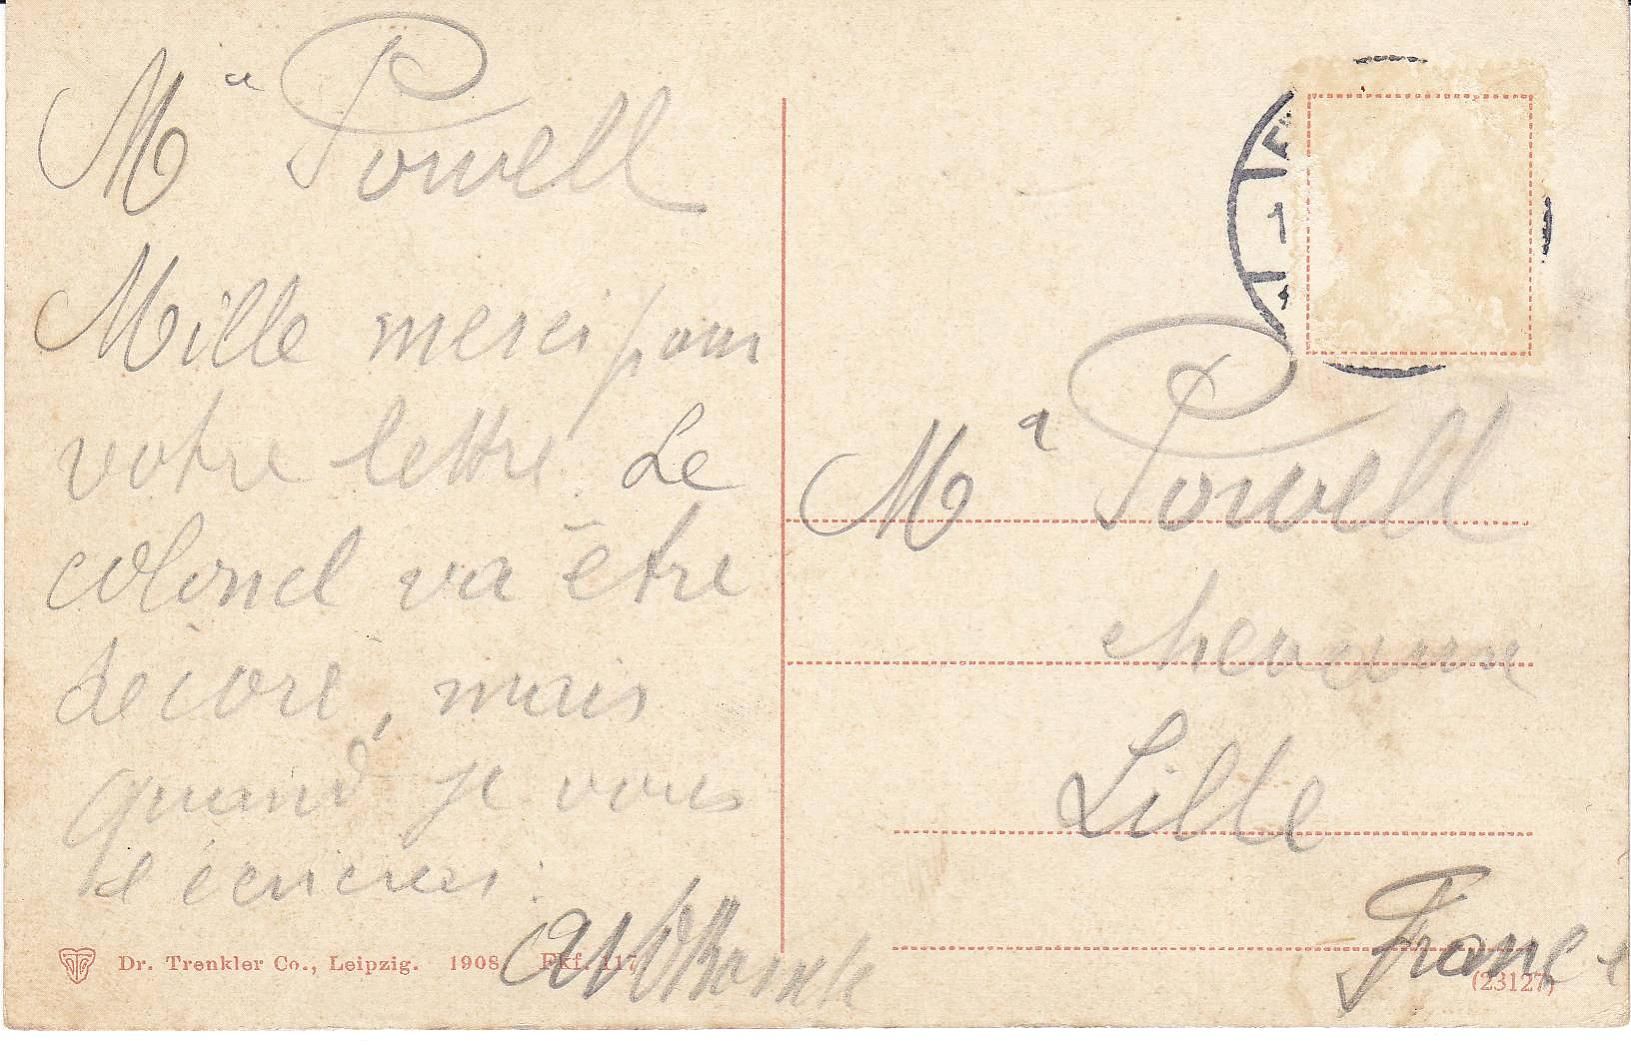 Mᵃ Powell
Mille merci pour
votre lettre. Le
colonel va être
decoré, mais
quand je vous
l'écrirer.
Dr. Trenkler Co., Leipzig. 1908. Fkf. 117
1
Mᵃ Powell
Lille
France
(23127)